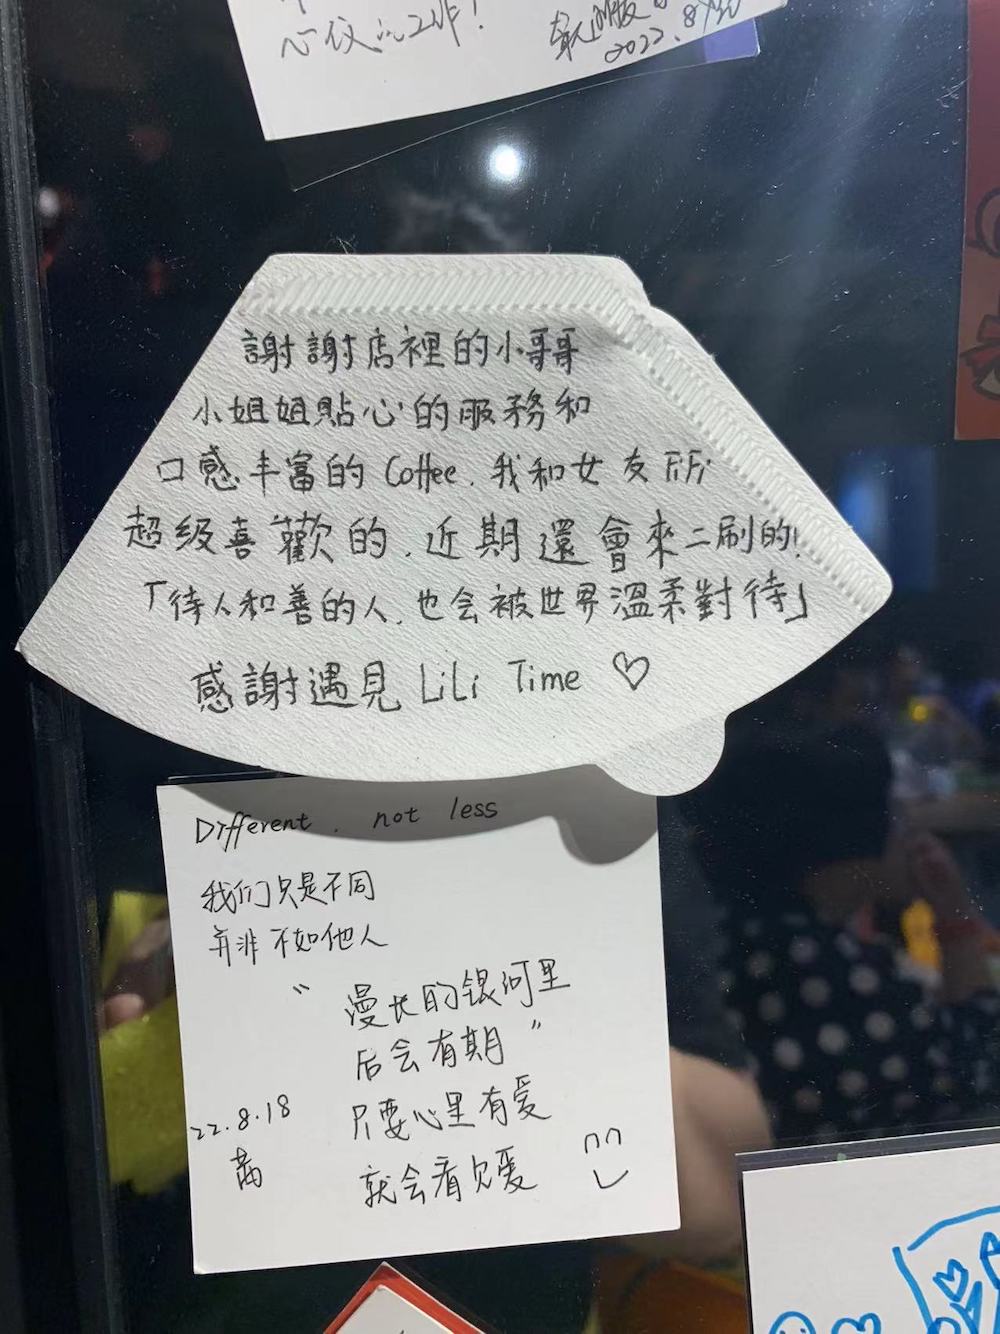 心仪的工作!
2022.8
謝謝店裡的小哥哥
小姐姐貼心的服務和
口感丰富的 Coffee. 我和女友所
超级喜歡的. 近期還會來二刷的!
「待人和善的人. 也会被世界溫柔對待」
感謝遇見 LiLi Time ♡
Different . not less
我们只是不同
并非不如他人
" 漫长的银河里
后会有期 "
只要心里有爱
22.8.18
就会看见爱